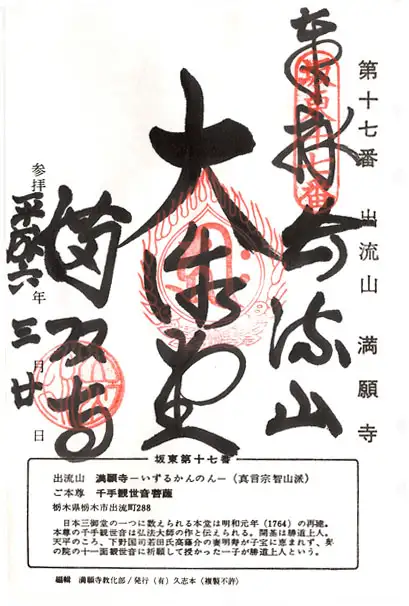 第十七番 出流山 満願寺
奉拝 出流山
坂東十七番
大御堂
満願寺
参拝 平成六年 三月廿日
坂東第十七番
出流山 満願寺－いずるかんのん－（真言宗智山派）
ご本尊 千手観世音菩薩
栃木県栃木市出流町288
日本三御堂の一つに数えられる本堂は明和元年（1764）の再建。
本尊の千手観世音は弘法大師の作と伝えられる。開基は勝道上人。
天平のころ、下野国司若田氏高藤介の妻明寿が子宝に恵まれず、奥
の院の十一面観世音に祈願して授かった一子が勝道上人という。
編輯 満願寺教化部／発行（有）久志本（複製不許）